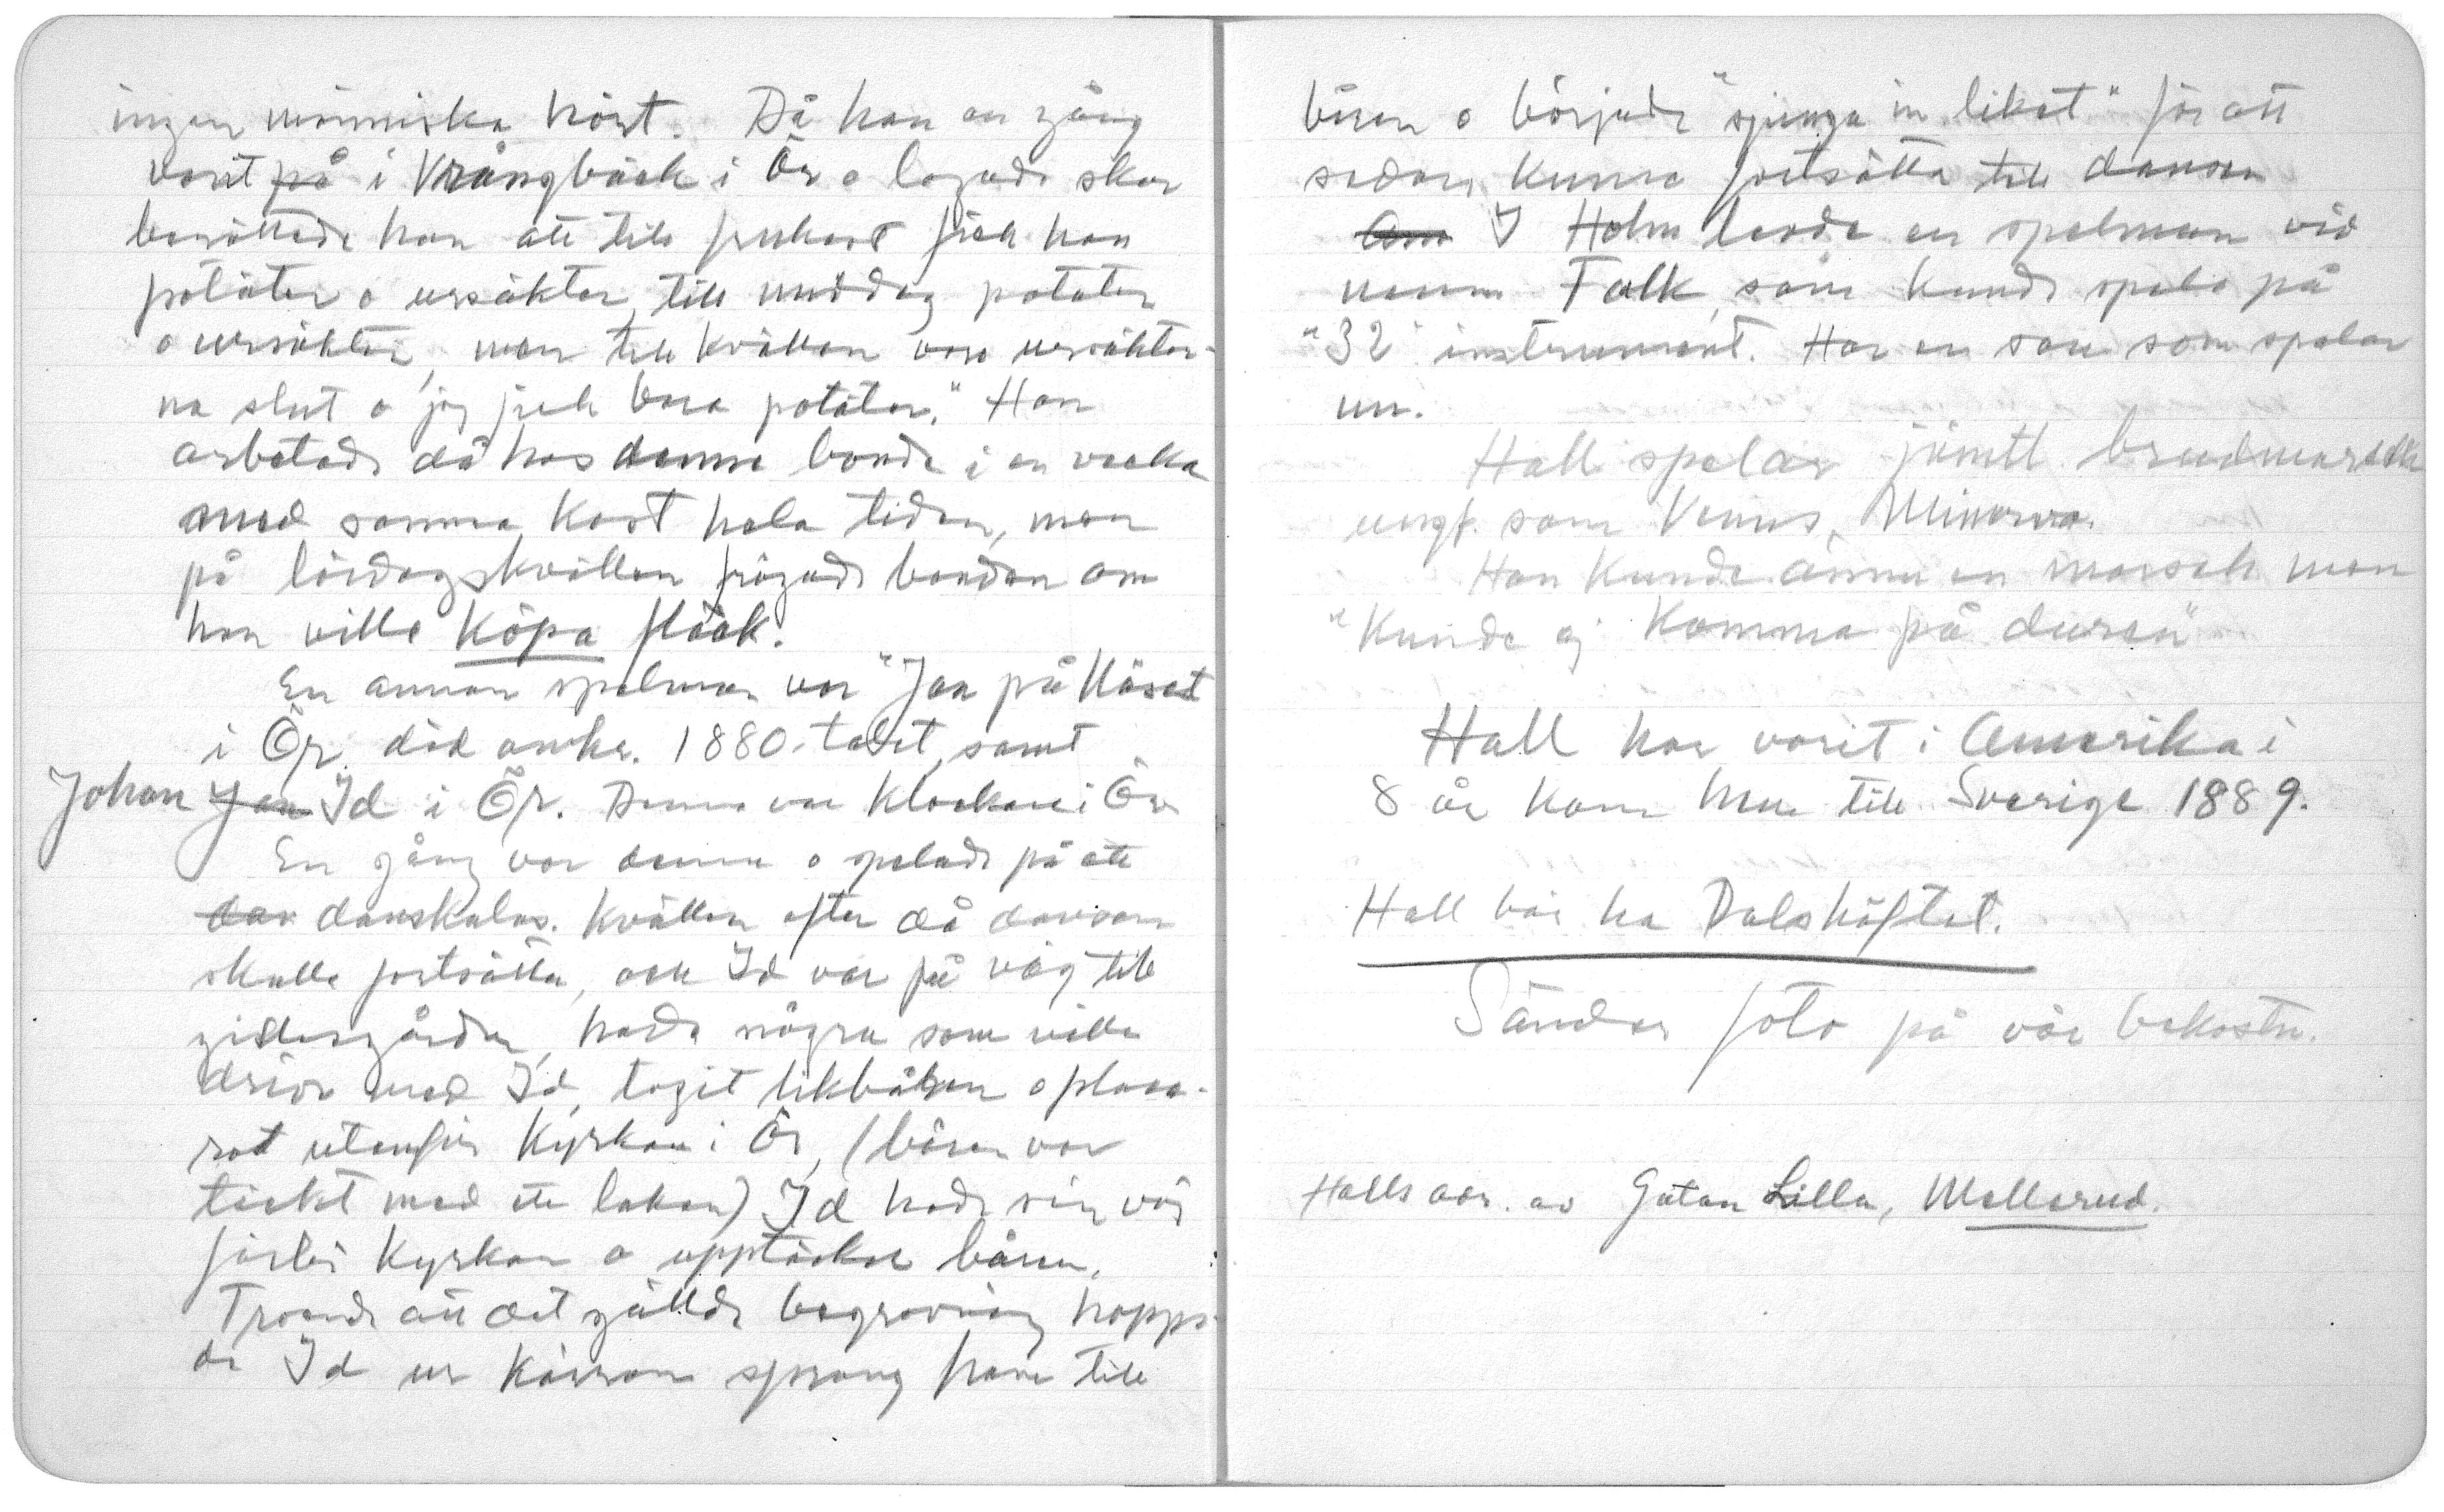 ingen människa hört. Då han en gång
varit på i Vrångbäck i Ör o lagade skor
berättade han att till frukost fick han
potäter o ursäkter, till middag potäter
o ursäkter, men till kvällen voro ursäkter-
na slut o jag fick bara potäter." Han
arbetade då hos denne bonde i en vecka
med samma kost hela tiden, men
på lördagskvällen frågade bonden om
han ville köpa fläsk.
En annan spelman var "Jan på Näset
i Ör, död omkr. 1880-talet, samt
Johan Jan Id i Ör. Denne var klockare i Ör
En gång var denne o spelade på ett
dan danskalas. Kvällen efter då dansen
skulle fortsätta, och Id var på väg till
gillesgården, hade några som ville
driva med Id, tagit likbåren o place-
rat utanför kyrkan i Ör, (båren var
täckt med ett lakan) Id hade sin väg
förbi kyrkan o upptäckte båren.
Troende att det gällde begravning hoppa-
de Id ur kärran sprang fram till
båren o började "sjunga in liket" för att
sedan kunna fortsätta till dansen
Om I Holm levde en spelman vid
namn Falk, som kunde spela på
"32" instrument. Har en son som spelar
nu.
Hall spelar jämtl. brudmarsch
ungf. som Venus, Minerva.
Han kunde ännu en marsch men
"kunde ej komma på dursen"
Hall har varit i Amerika i
8 år kom hem till Sverige 1889.
Hall bör ha Dalshäftet.
Sänder foto på vår bekostn.
Halls adr. är Gatan Lilla, Mellerud.